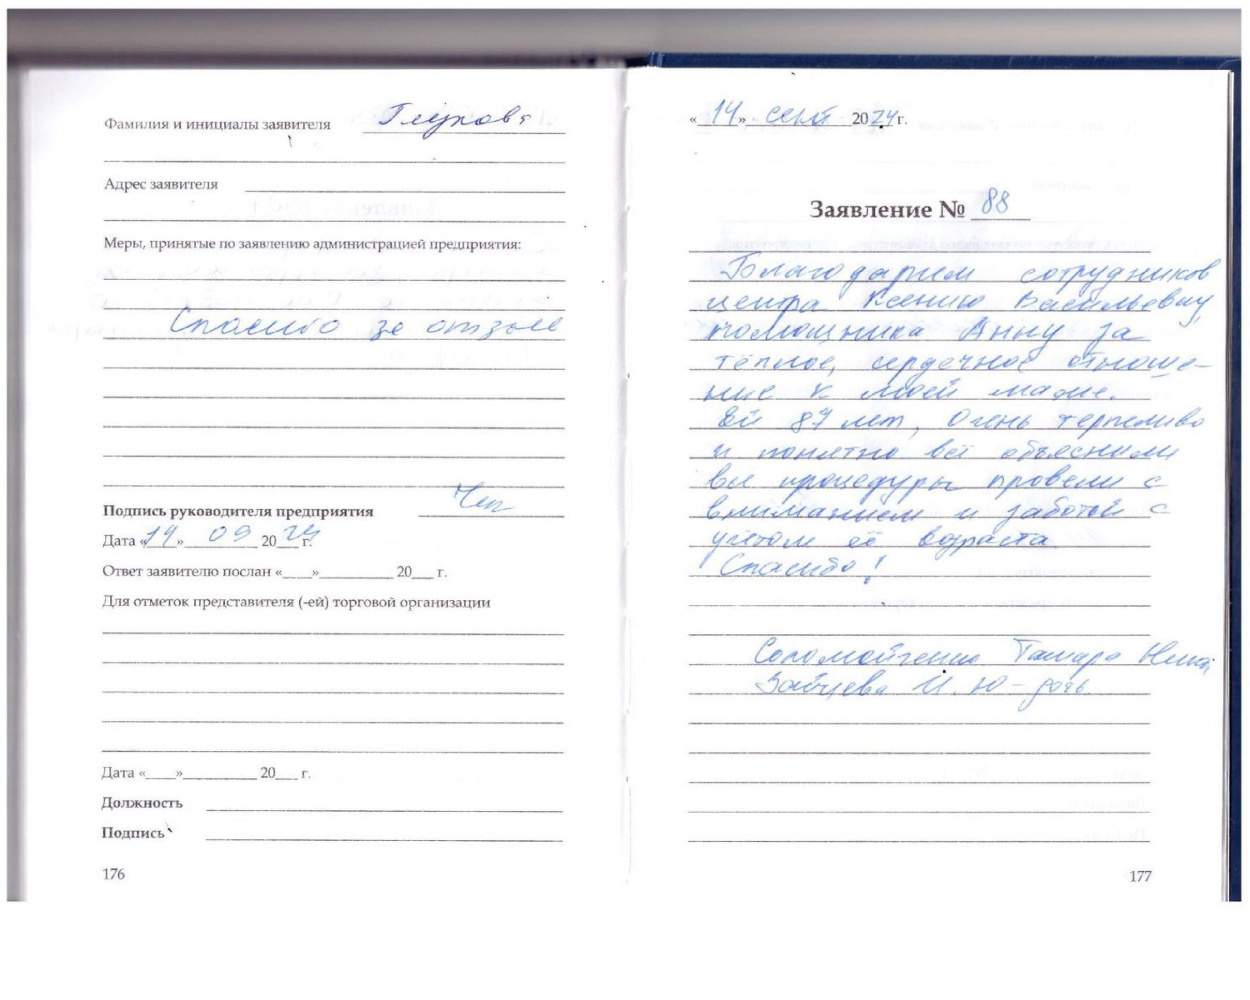 Фамилия и инициалы заявителя
Адрес заявителя
Меры, принятые по заявлению администрацией предприятия:
Спасибо за отзыв
Подпись руководителя предприятия
Дата «14» 09 2024 г.
Ответ заявителю послан «____»__________ 20___ г.
Для отметок представителя (-ей) торговой организации
Дата «____»__________ 20___ г.
Должность
Подпись
176
«14» сент 2024 г.
Заявление № 88
Благодарим сотрудников
центра Ксению Васильевну,
помощника Анну за
тёплое, сердечное отноше-
ние к моей маме.
Ей 87 лет, Очень терпеливо
и понятно всё объяснили
все процедуры провели с
вниманием и заботой с
учётом её возраста
Спасибо!
Тамара
Зайцева И. Ю – дочь
177